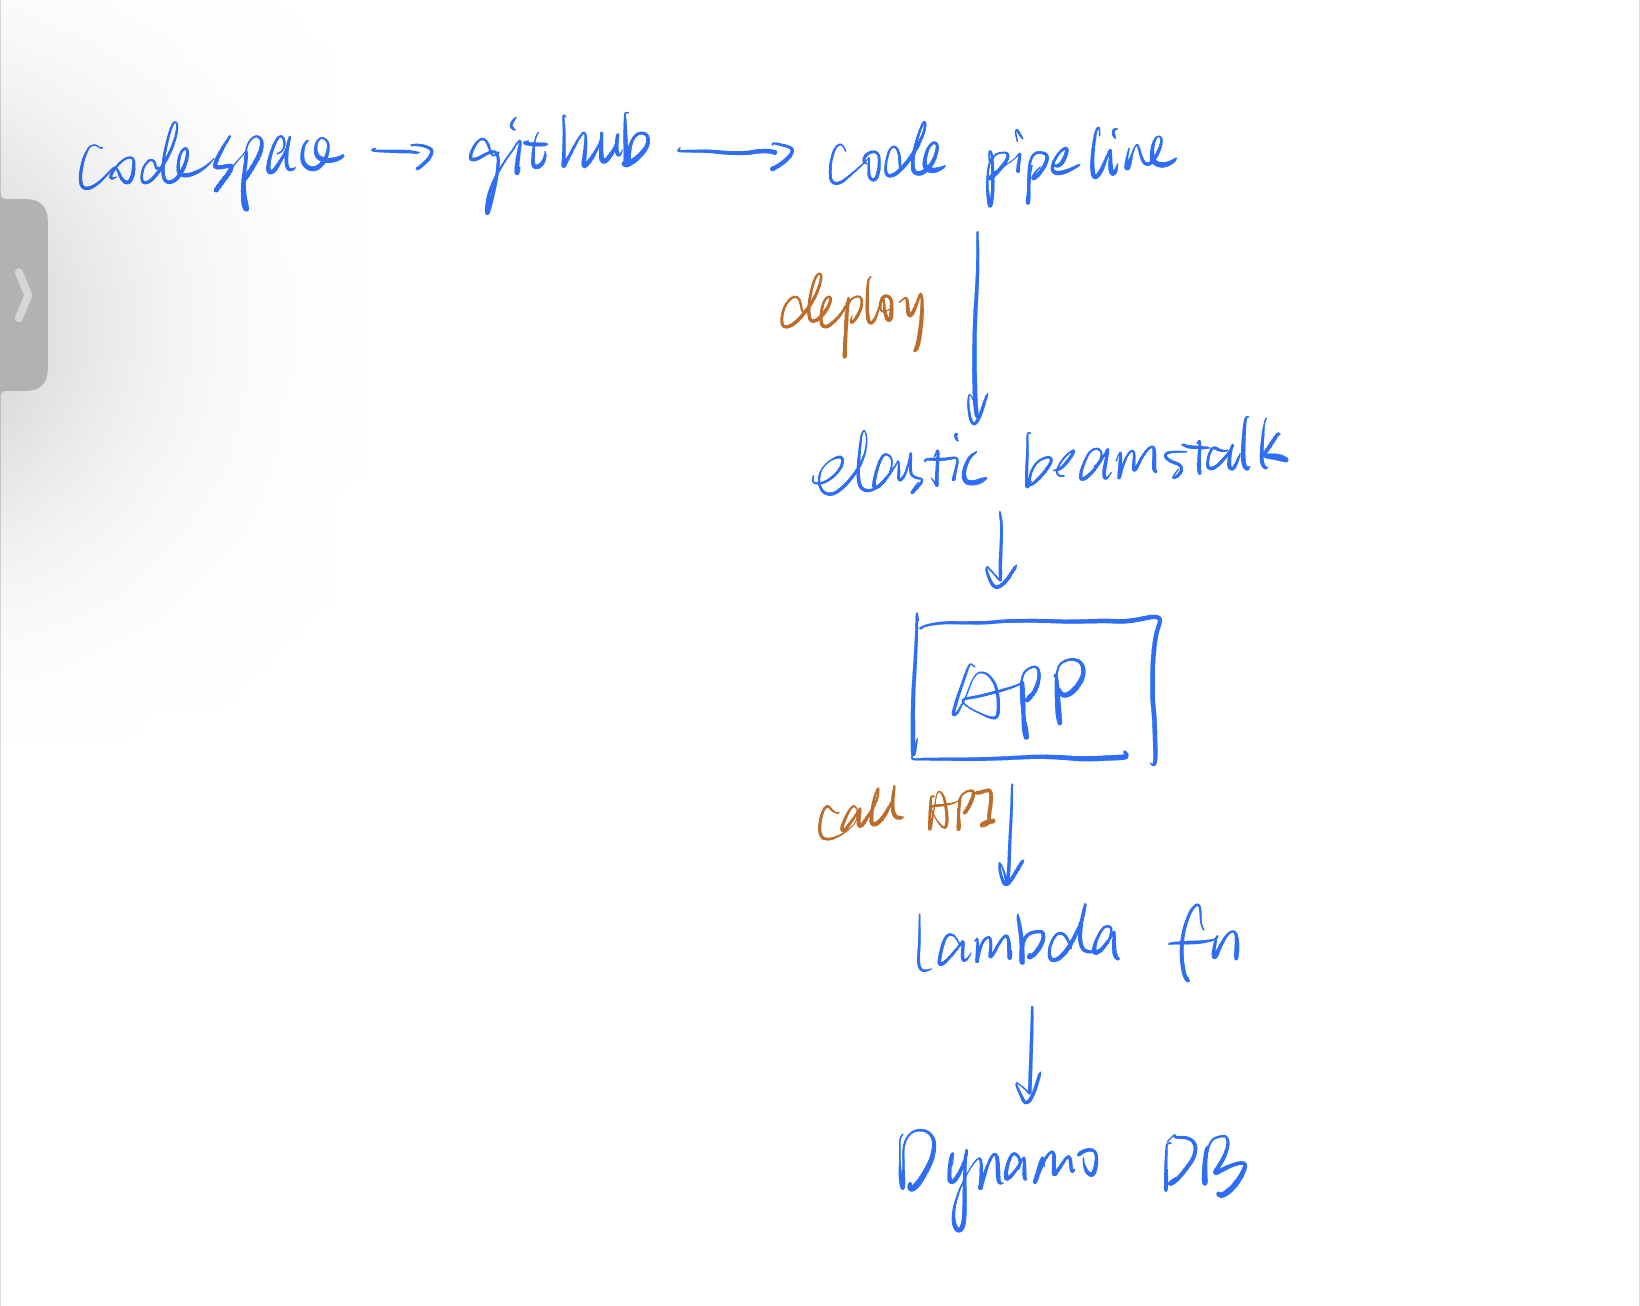 codespace → github → code pipeline
deploy
elastic beamstalk
APP
call API
lambda fn
Dynamo DB